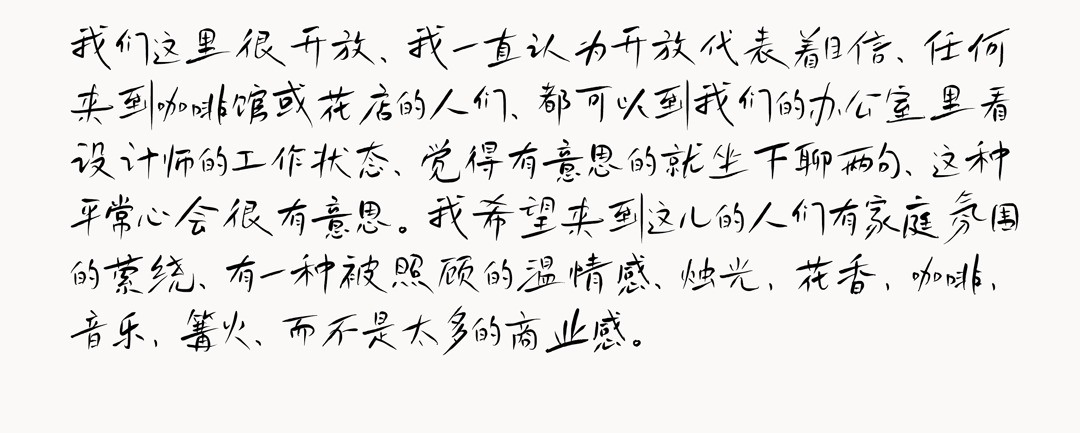 我们这里很开放、我一直认为开放代表着自信、任何
来到咖啡馆或花店的人们、都可以到我们的办公室里看
设计师的工作状态、觉得有意思的就坐下聊两句、这种
平常心会很有意思。我希望来到这儿的人们有家庭氛围
的萦绕、有一种被照顾的温情感、烛光，花香，咖啡，
音乐，篝火、而不是太多的商业感。